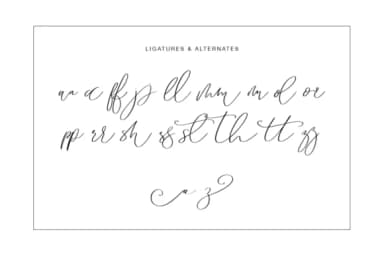 LIGATURES & ALTERNATES
ff p ll mm d or
pp rr sh ss st th tt zz